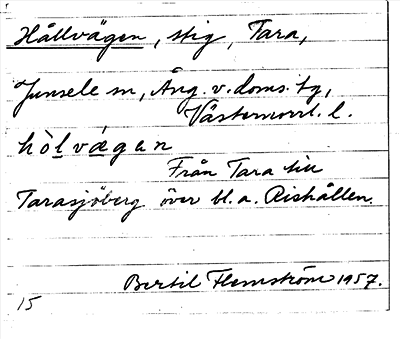 Hållvägen, stig, Tara,
Junsele sn, Ång. v. doms. tg,
Västernorrl. l.
hòlvägen
Från Tara till
Tarasjöberg över bl. a. Rishållen.
Bertil Flemström 1957.
15